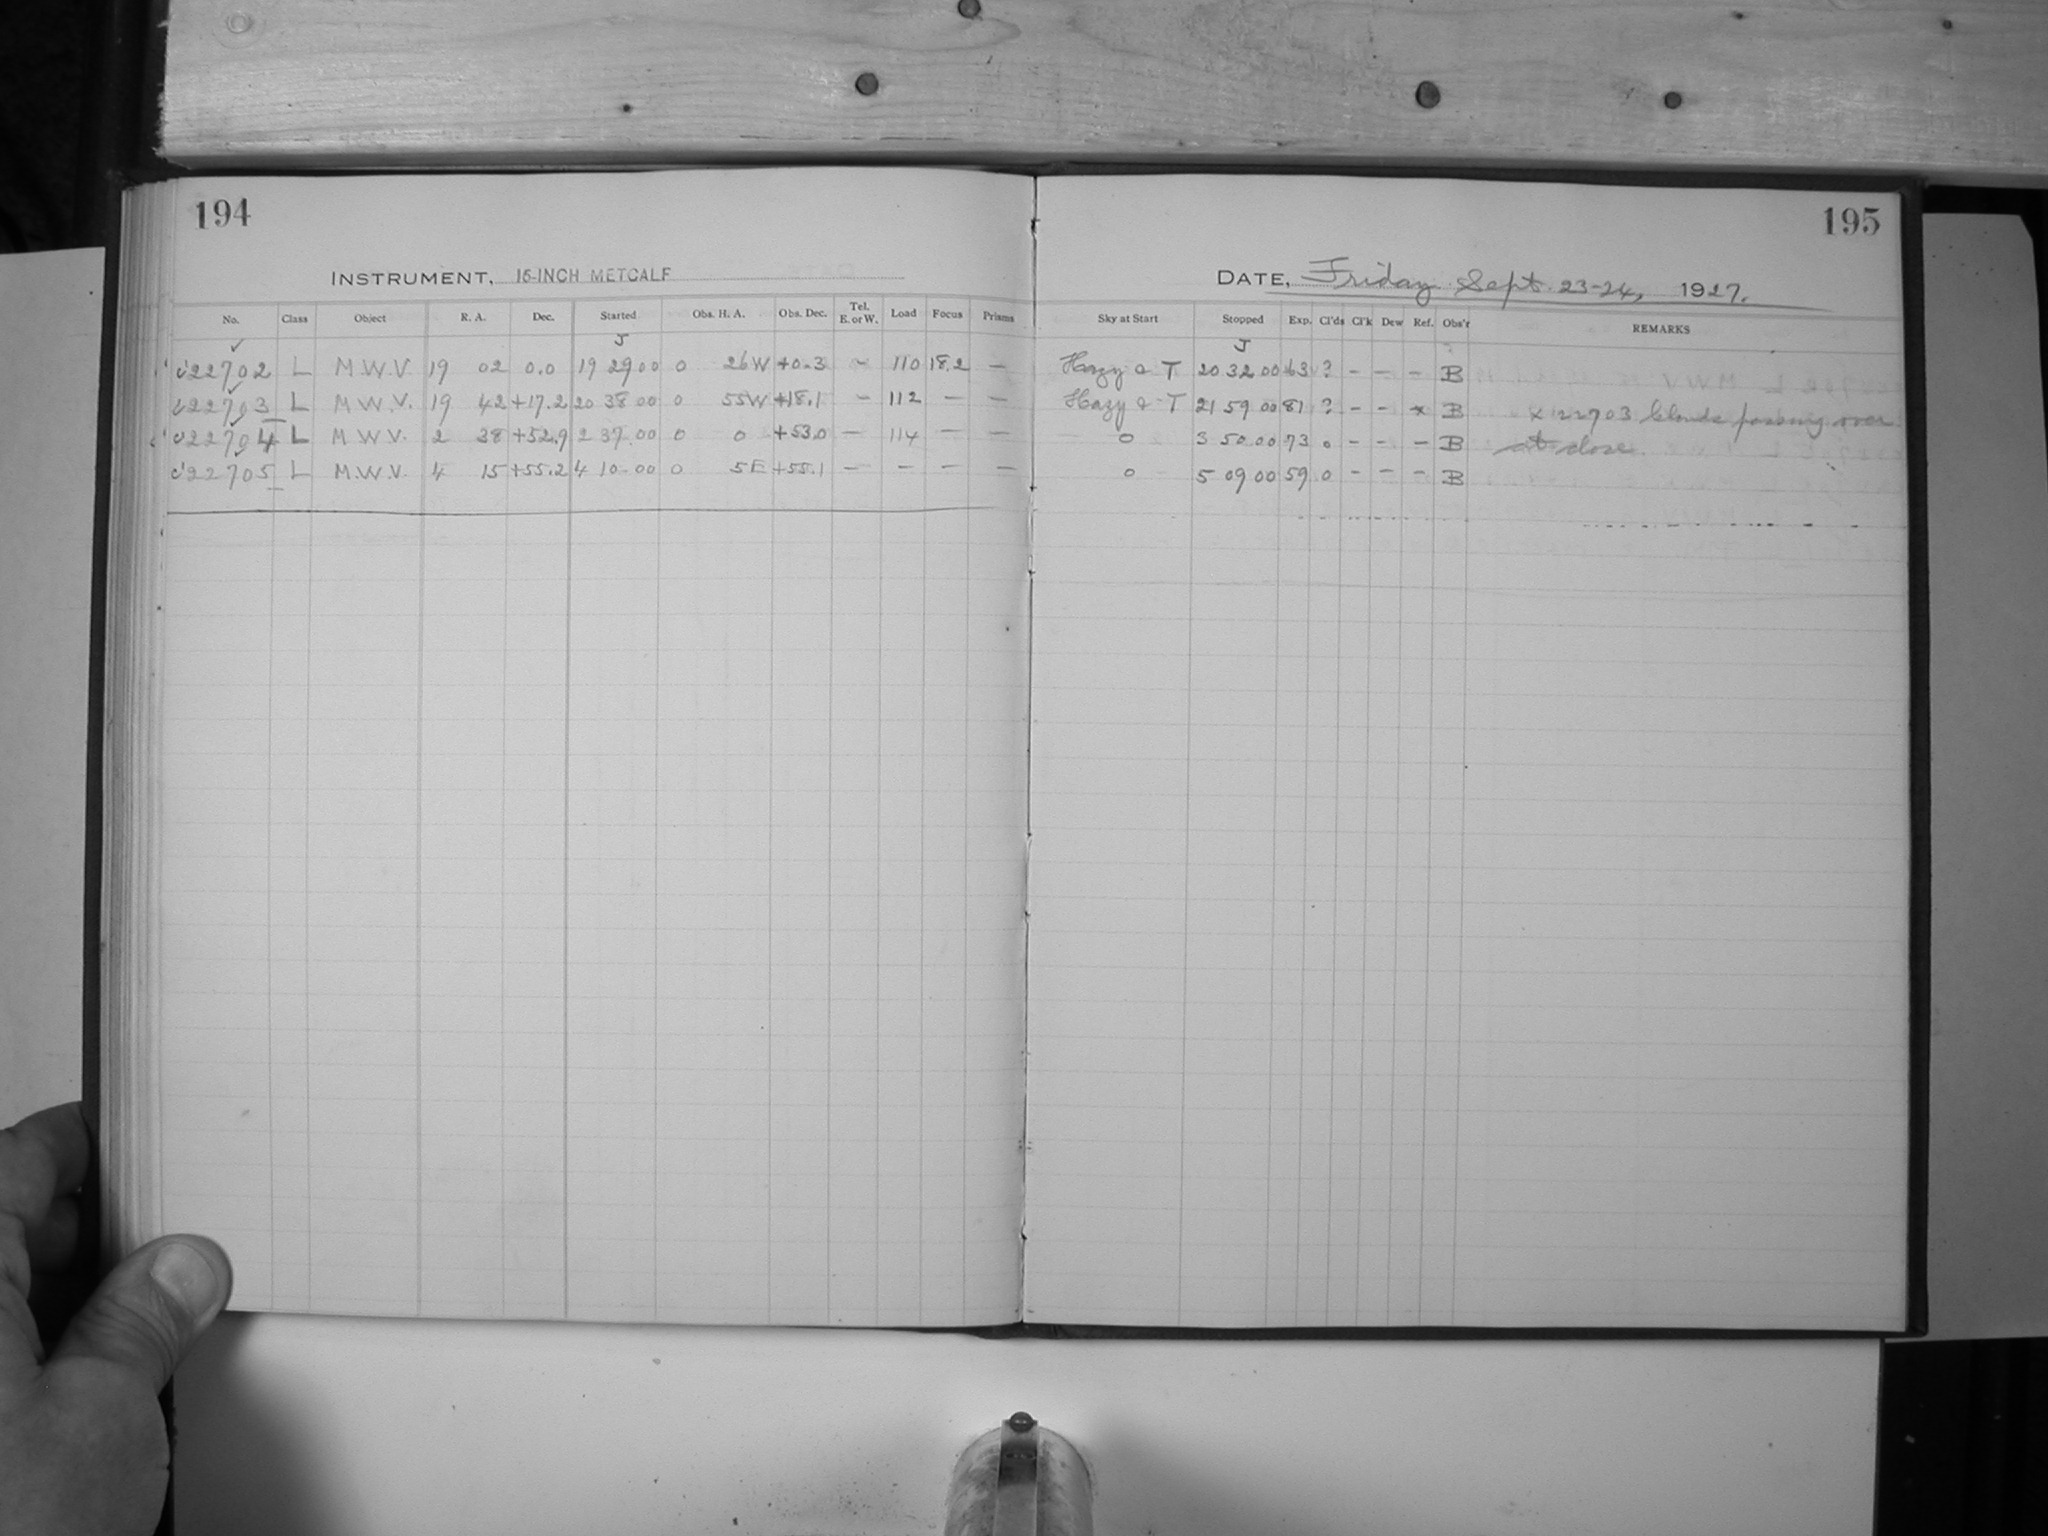 194
INSTRUMENT, 16-INCH METCALF
No. Class Object R. A. Dec. Started Obs. H. A. Obs. Dec. Tel. E. or W. Load Focus Prisms
J
22702 L M.W.V. 19 02 0.0 19 29 00 0 26W +0.3 – 110 18.2 –
22703 L M.W.V. 19 42 +17.2 20 38 00 0 55W +18.1 – 112 – –
22704 L M.W.V. 2 38 +52.9 2 37 00 0 0 +53.0 – 114 – –
22705 L M.W.V. 4 15 +55.2 4 10 00 0 5E +55.1 – – – –
195
DATE, Friday Sept. 23-24, 1927.
Sky at Start Stopped Exp. Cl'ds Cl'k Dew Ref. Obs'r REMARKS
J
Hazy & T 20 32 00 63 ? – – – B
Hazy & T 21 59 00 81 ? – – x B x 22703 Clouds passing over
0 3 50 00 73 0 – – – B at close.
0 5 09 00 59 0 – – – B